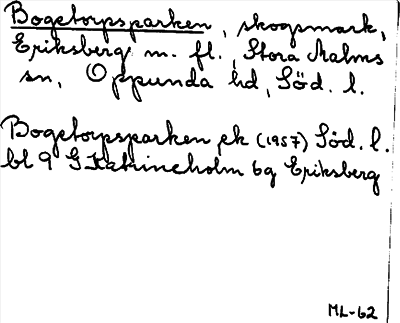 Bogetorpsparken, skogsmark,
Eriksberg m. fl., Stora Malms
sn, Oppunda hd, Söd. l.
Bogetorpsparken, ek (1957) Söd. l.
bl 9 G Katrineholm 6g Eriksberg
ML-62